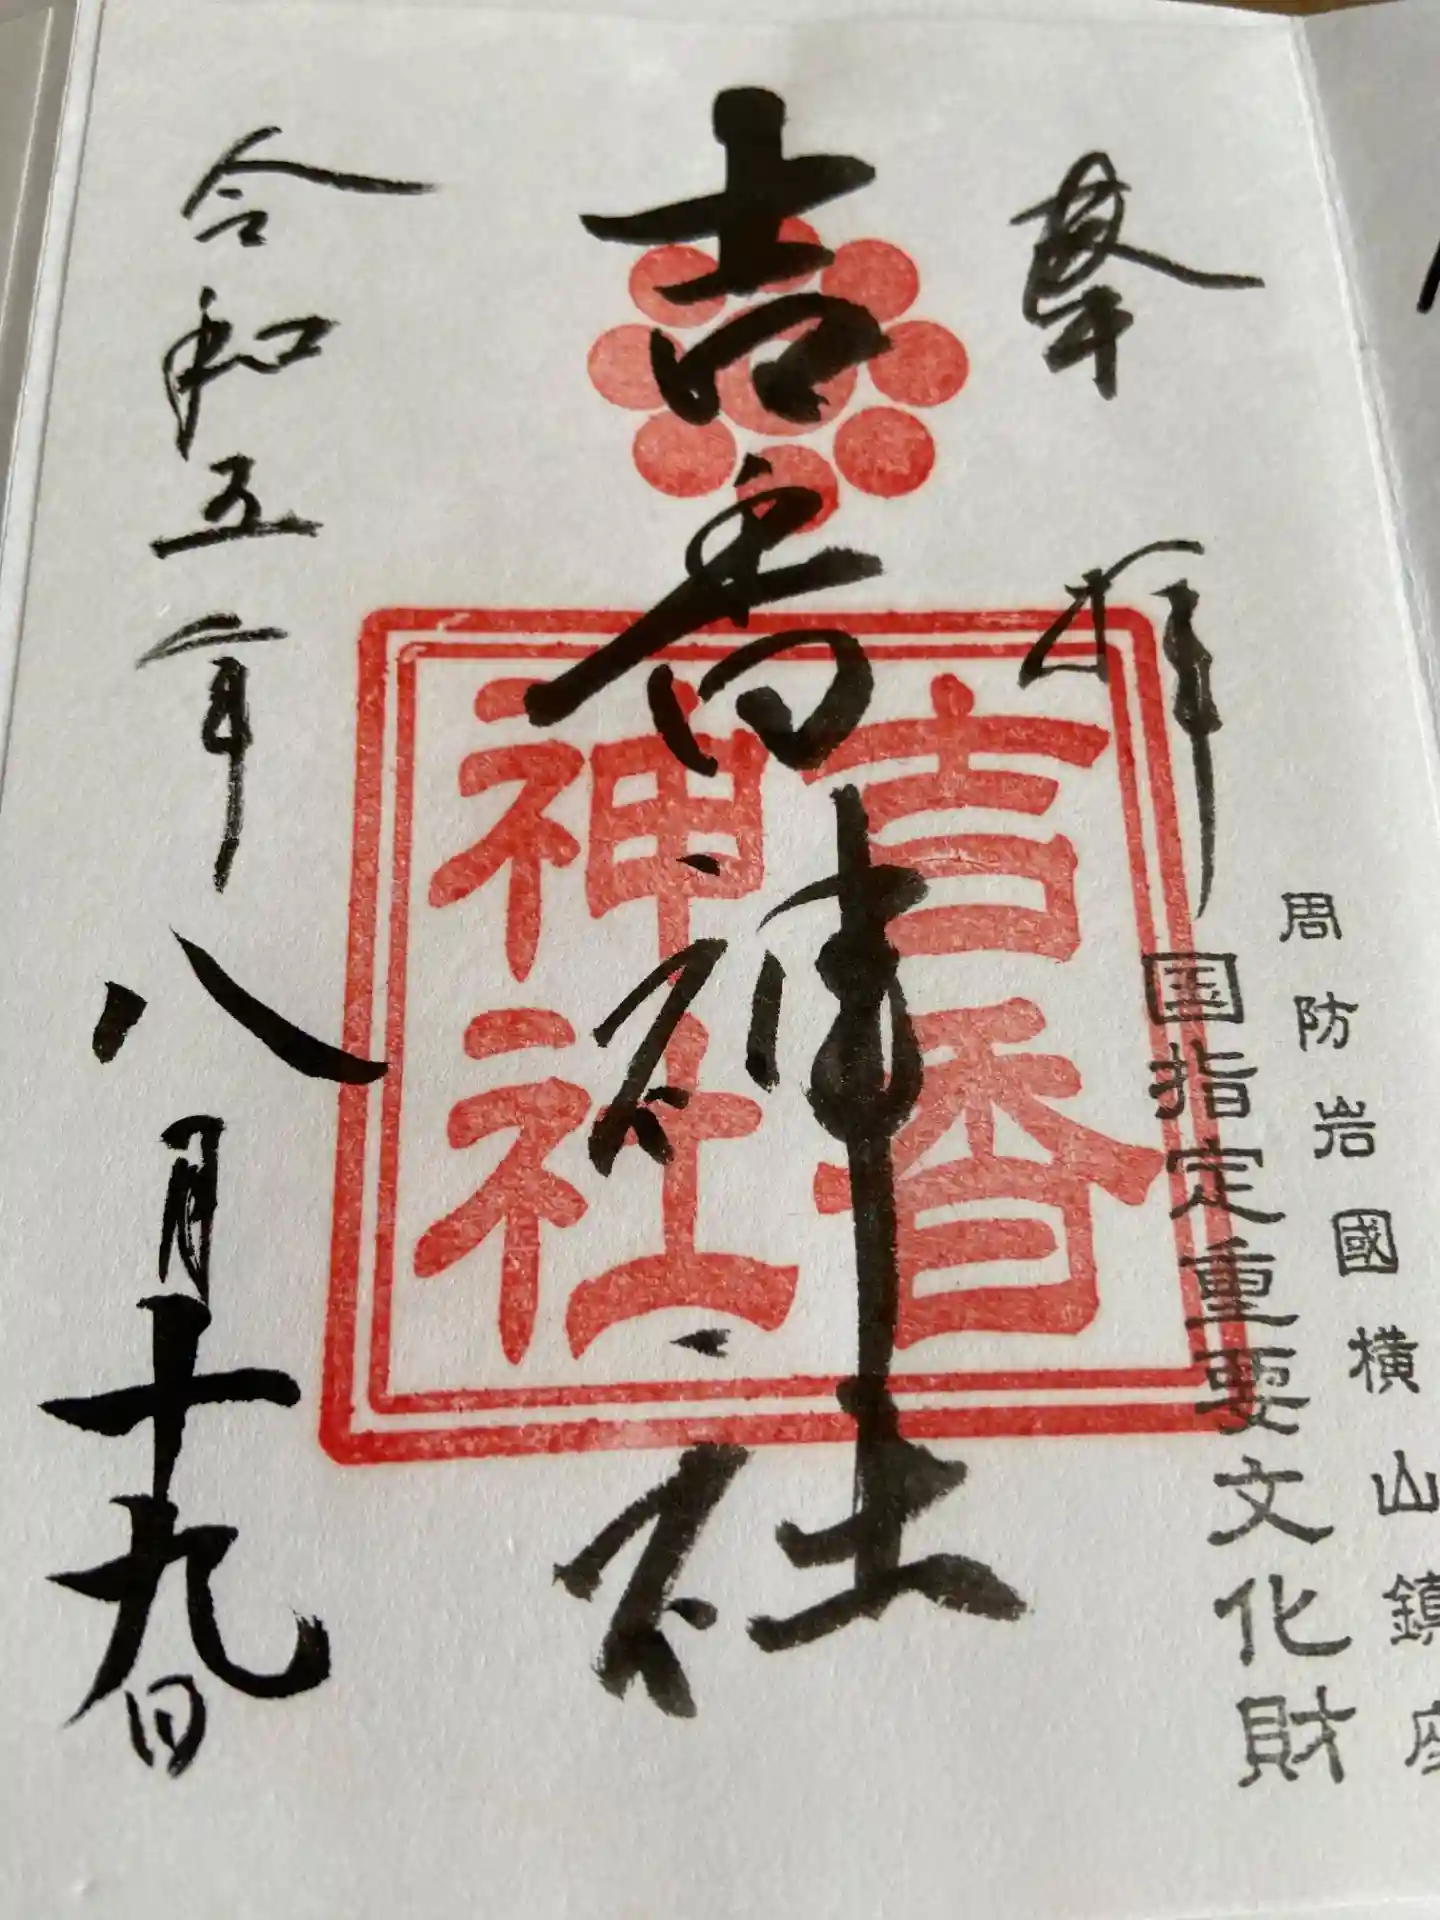 周防岩國横山鎮座
国指定重要文化財
奉拝
吉香神社
吉香
神社
令和五年八月十九日